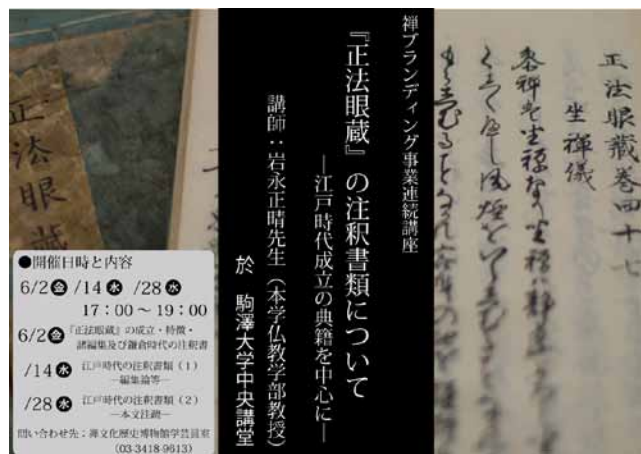 禅ブランディング事業連続講座
『正法眼蔵』の注釈書類について
―江戸時代成立の典籍を中心に―
講師：岩永正晴先生（本学仏教学部教授）
於 駒澤大学中央講堂
●開催日時と内容
6/2金 /14水 /28水
17：00～19：00
6/2金 『正法眼蔵』の成立・特徴・
諸編集及び鎌倉時代の注釈書
/14水 江戸時代の注釈書類（1）
―編集論等―
/28水 江戸時代の注釈書類（2）
―本文注釈―
問い合わせ先：禅文化歴史博物館学芸員室
（03-3418-9613）
正法眼藏巻四十七
坐禪儀
正法眼藏